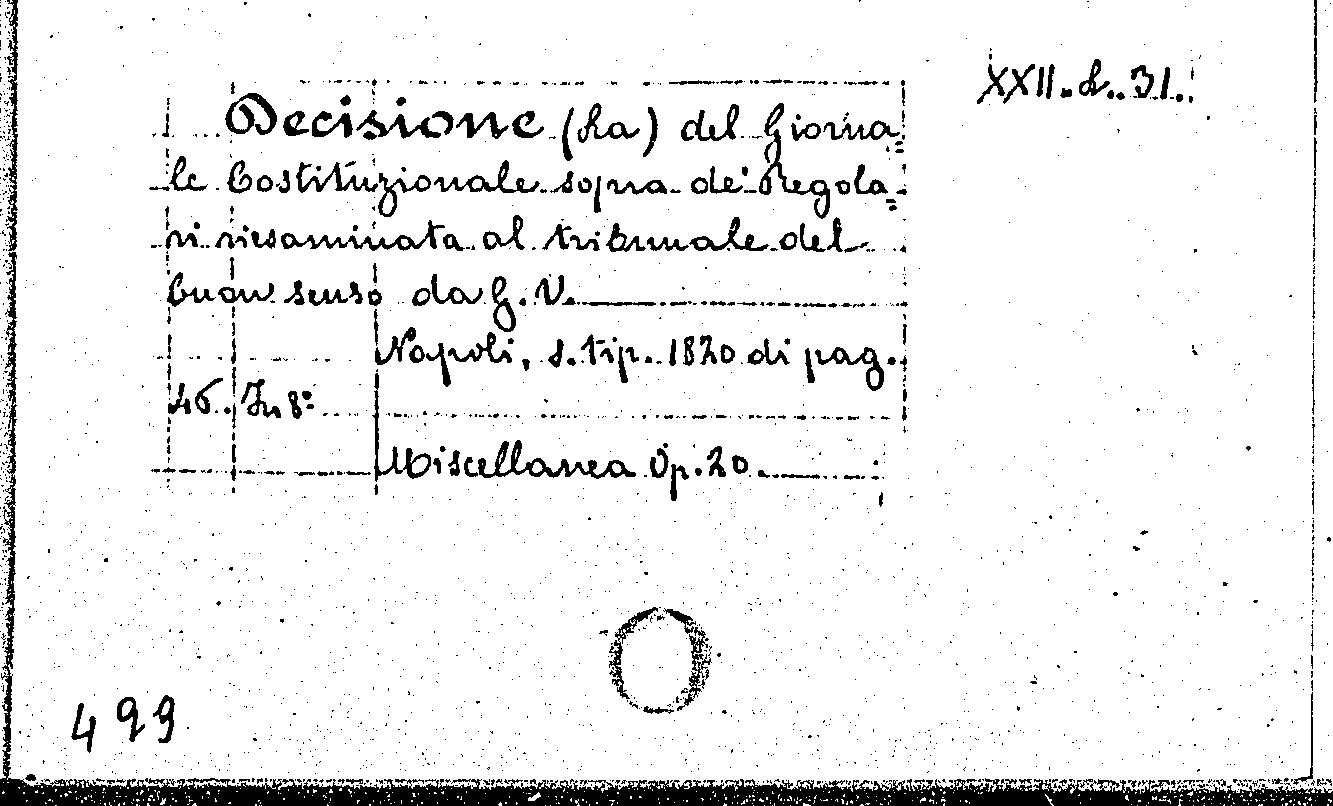 XXII. d. 31.
Decisione (La) del Giorna=
le Costituzionale sopra de' Regola=
ri riesaminata al tribunale del
buon senso da G. V.
Napoli, s. tip. 1820 di pag.
46. In 8º
Miscellanea Op. 20.
499